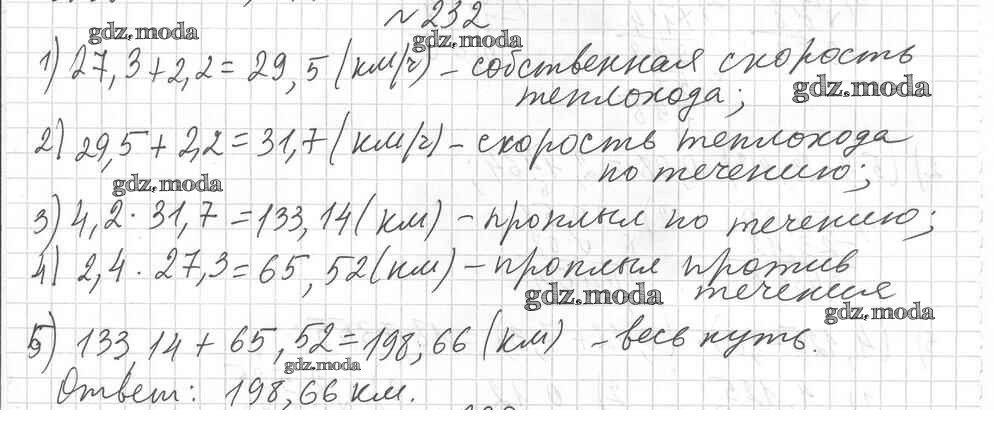 №232
gdz.moda
gdz.moda
1) 27,3+2,2=29,5 (км/ч) – собственная скорость
теплохода;
gdz.moda
2) 29,5+2,2=31,7 (км/ч) – скорость теплохода
по течению;
gdz.moda
3) 4,2·31,7=133,14 (км) – проплыл по течению;
4) 2,4·27,3=65,52 (км) – проплыл против
течения
gdz.moda
gdz.moda
5) 133,14+65,52=198,66 (км) – весь путь.
gdz.moda
Ответ: 198,66 км.